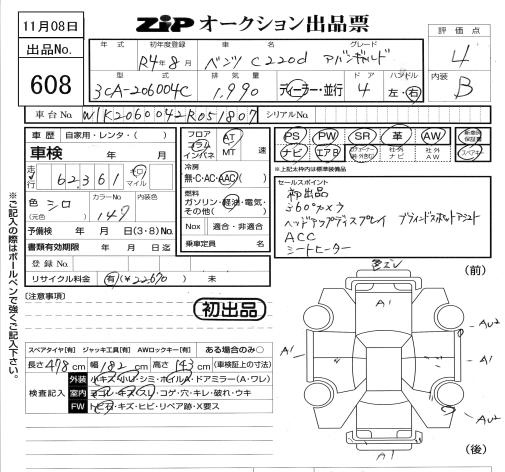 11月08日
ZIP オークション出品票
評価点
出品No.
608
年式 初年度登録 車名 グレード
R4年8月 ベンツ C220d アバンギャルド
4
型式 排気量 ドア ハンドル
3CA-206004C 1,990 ディーラー・並行 4 左・右
内装
B
車台No. W1K2060042R051807 シリアルNo.
車歴 自家用・レンタ( )
車検 年 月
走行 62,361 キロ マイル
色 シロ カラーNo 内装色
(元色) 147
予備検 年 月 日(3・8)No.
書類有効期限 年 月 日迄
登録No.
リサイクル料金 有(¥22,670) 未
フロア コラム インパネ AT MT 速
冷房
無・C・AC・AAC
燃料
ガソリン・軽油・電気・その他( )
Nox 適合・非適合
乗車定員 名
PS PW SR 革 AW 新車時保証書
ナビ エアB 社外ナビ 社外AW
※上記太枠内は標準装備品
セールスポイント
初出品
360°カメラ
ヘッドアップディスプレイ ブラインドスポットアシスト
ACC
シートヒーター
※ご記入の際はボールペンで強くご記入下さい。
[注意事項]
初出品
(前)
A1
A1
AU2
A1
AU2
A1
(後)
スペアタイヤ[有] ジャッキ工具[有] AWロックキー[有] ある場合のみ○
長さ478cm 幅182cm 高さ143cm (車検証上の寸法)
検査記入
外装 小キズ・小U・シミ・ホイルA・ドアミラー(A・ワレ)
室内 ヨゴレ・キズ・スレ・コゲ・穴・キレ・破れ・ウキ
FW トビ石・キズ・ヒビ・リペア跡・X要ス